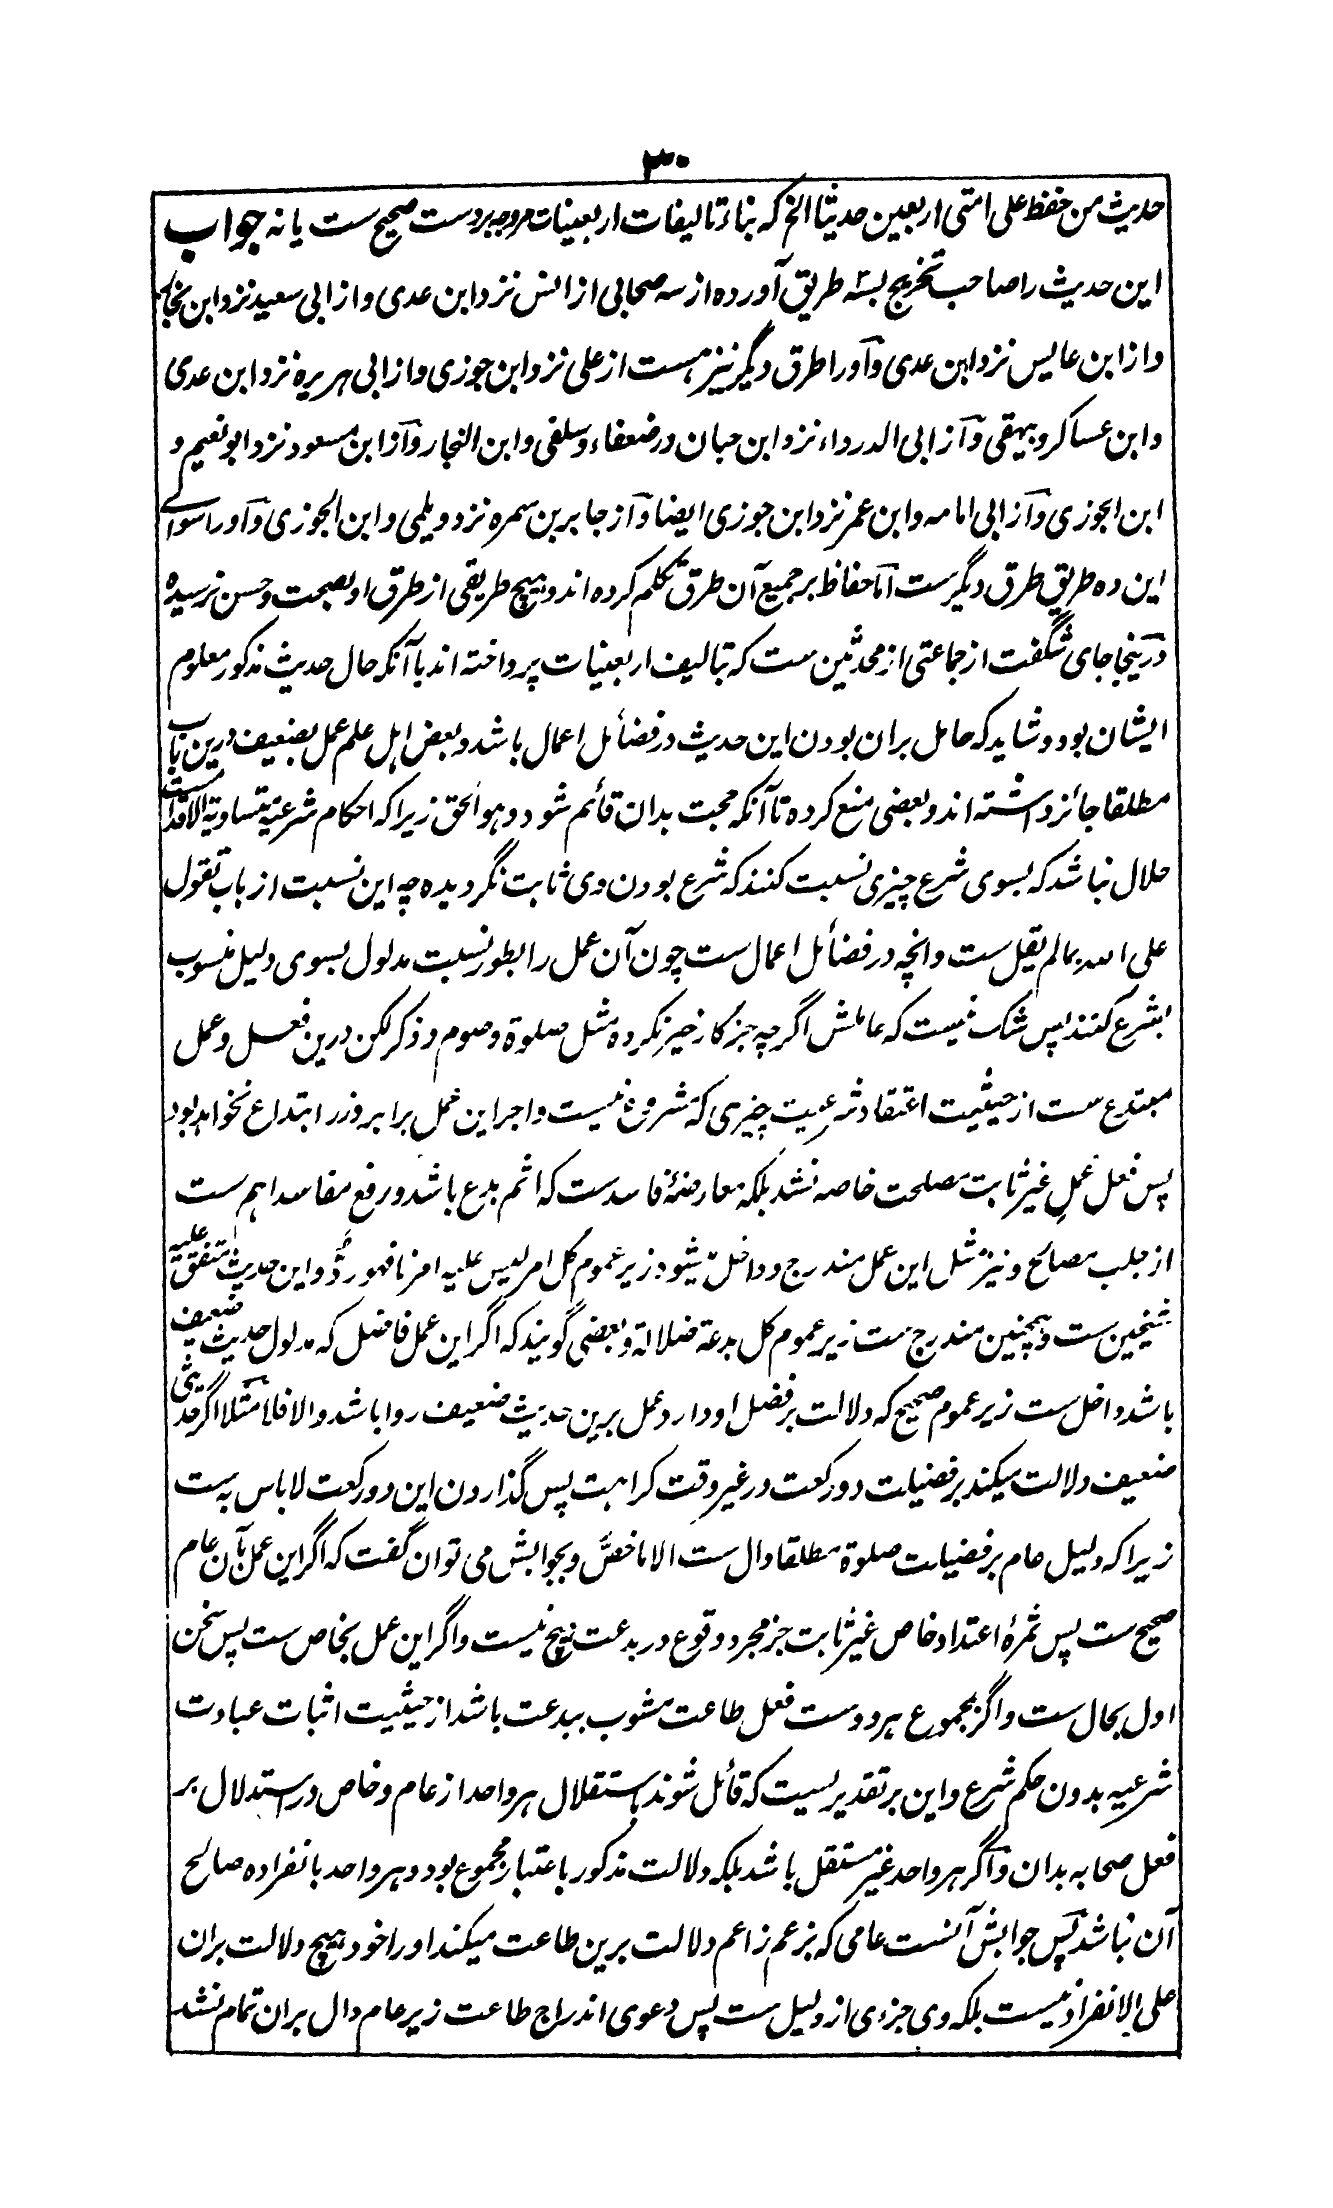 ۳۰
حدیث من حفظ علی امتی اربعین حدیثا الخ که بناء تالیفات اربعینات مروجه بروست صحیح ست یا نه جواب
این حدیث را صاحب تخریج بسه طریق آورده از سه صحابی از انس نزد ابن عدی و از ابی سعید نزد ابن نجار
و از ابن عباس نزد ابن عدی و او را طرق دیگر نیز هست از علی نزد ابن جوزی و از ابی هریره نزد ابن عدی
و ابن عساکر و بیهقی و از ابی الدرداء نزد ابن حبان در ضعفاء و سلفی و ابن النجار و از ابن مسعود نزد ابو نعیم و
ابن الجوزی و از ابی امامه و ابن عمر نزد ابن جوزی ایضا و از جابر بن سمره نزد دیلمی و ابن الجوزی و او را سوای
این ده طریق طرق دیگر ست اما حفاظ بر جمیع آن طرق تکلم کرده اند و هیچ طریقی از طرق او بصحت و حسن نرسیده
و درینجا جای شگفت از جماعتی از محدثین ست که بتالیف اربعینات پرداخته اند با آنکه حال حدیث مذکور معلوم
ایشان بود و شاید که حامل بران بودن این حدیث در فضائل اعمال باشد و بعض اهل علم عمل بضعیف درین باب
مطلقا جائز داشته اند و بعضی منع کرده تا آنکه حجت بدان قائم شود و هو الحق زیرا که احکام شرعیه متساویة الاقدام ست
حلال نباشد که بسوی شرع چیزی نسبت کنند که شرع بودن وی ثابت نگردیده چه این نسبت از باب تقول
علی الله بمالم یقل ست و انچه در فضائل اعمال ست چون آن عمل را بطور نسبت مدلول بسوی دلیل منسوب
بشرع کنند پس شک نیست که عاملش اگرچه جز کار خیر نکرده مثل صلوة و صوم و ذکر لکن درین فعل و عمل
مبتدع ست از حیثیت اعتقاد شرعیت چیزی که مشروع نیست و اجر این عمل برابر وزر ابتداع نخواهد بود
پس فعل عمل غیر ثابت مصلحت خاصه نشد بلکه معارضهٔ فاسدست که اثم بدع باشد و رفع مفاسد اهم ست
از جلب مصالح و نیز مثل این عمل مندرج و داخل میشود زیر عموم کل امر لیس علیه امرنا فهو رد و این حدیث متفق علیه
شیخین ست و همچنین مندرج ست زیر عموم کل بدعة ضلالة و بعضی گویند که اگر این عمل فاضل که مدلول حدیث ضعیف
باشد داخل ست زیر عموم صحیح که دلالت بر فضل او دارد عمل برین حدیث ضعیف روا باشد والا فلا مثلا اگر حدیثی
ضعیف دلالت میکند بر فضیلت دو رکعت در غیر وقت کراهت پس گذاردن این دو رکعت لا باس به ست
زیرا که دلیل عام بر فضیلت صلوة مطلقا دال ست الا ما خص و بجوابش می توان گفت که اگر این عمل بآن عام
صحیح ست پس ثمرهٔ اعتداد خاص غیر ثابت جز مجرد وقوع در بدعت هیچ نیست و اگر این عمل بخاص ست پس سخن
اول بحال ست و اگر بمجموع هر دو ست فعل طاعت مشوب ببدعت باشد از حیثیت اثبات عبادت
شرعیه بدون حکم شرع و این بر تقدیریست که قائل شوند باستقلال هر واحد از عام و خاص در استدلال بر
فعل صحابه بدان و اگر هر واحد غیر مستقل باشد بلکه دلالت مذکور باعتبار مجموع بود و هر واحد بانفراده صالح
آن نباشد پس جوابش آنست عامی که بزعم زاعم دلالت برین طاعت میکند او را خود هیچ دلالت بران
علی الانفراد نیست بلکه وی جزوی از دلیل ست پس دعوی اندراج طاعت زیر عام دال بران تمام نشد